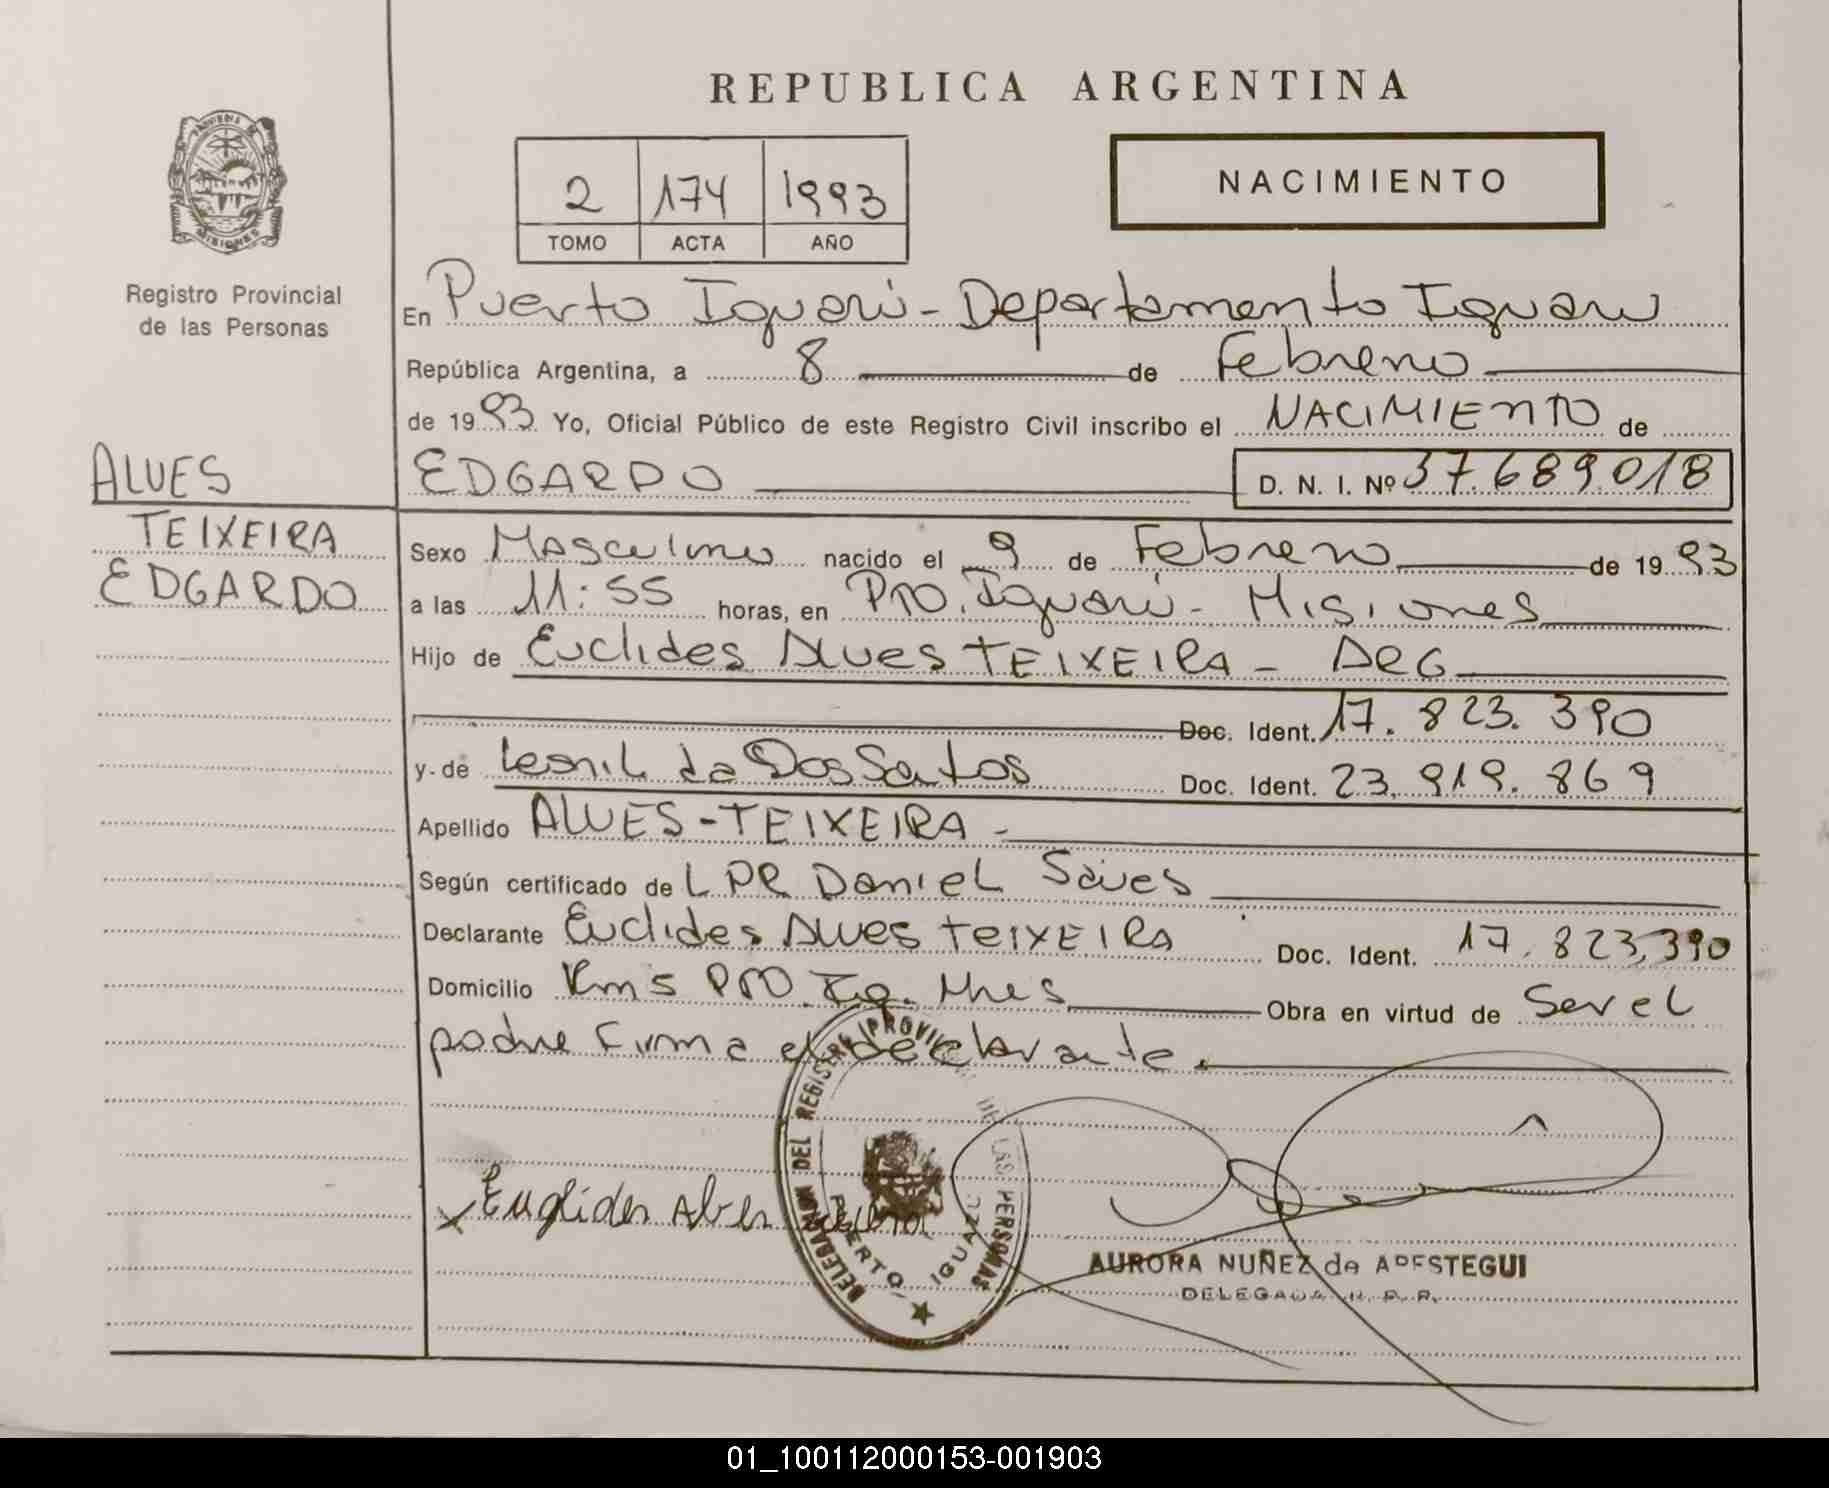 REPUBLICA ARGENTINA
PROVINCIA DE MISIONES
Registro Provincial
de las Personas
2 174 1993
TOMO ACTA AÑO
NACIMIENTO
En Puerto Iguazú - Departamento Iguazú
República Argentina, a 8 de Febrero
de 1993 Yo, Oficial Público de este Registro Civil inscribo el NACIMIENTO de
ALVES
EDGARDO D. N. I. Nº 37.689.018
TEIXEIRA
EDGARDO
Sexo Masculino nacido el 9 de Febrero de 1993
a las 11:55 horas, en Pto. Iguazú - Misiones
Hijo de Euclides Alves TEIXEIRA - ARG
Doc. Ident. 17.823.390
y de Dos Santos Doc. Ident. 23.919.869
Apellido ALVES-TEIXEIRA -
Según certificado de L PR Daniel
Declarante Euclides Alves TEIXEIRA Doc. Ident. 17.823,390
Domicilio Km 5 Pto. Ig. Mnes Obra en virtud de Ser el
padre Firma el declarante.
DELEGACION DEL REGISTRO PROVINCIAL DE LAS PERSONAS
PUERTO IGUAZU
x Euglides Alves
AURORA NUÑEZ de APESTEGUI
DELEGADA R. P. P.
01_100112000153-001903